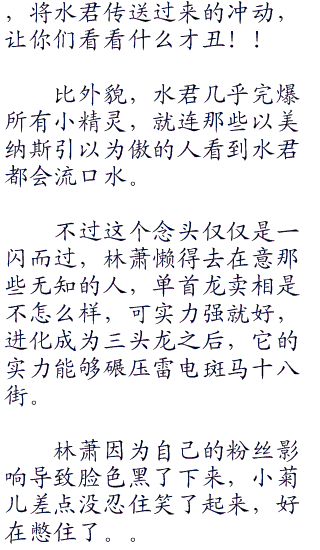 ，将水君传送过来的冲动，
让你们看看什么才丑！！
比外貌，水君几乎完爆
所有小精灵，就连那些以美
纳斯引以为傲的人看到水君
都会流口水。
不过这个念头仅仅是一
闪而过，林萧懒得去在意那
些无知的人，单首龙卖相是
不怎么样，可实力强就好，
进化成为三头龙之后，它的
实力能够碾压雷电斑马十八
街。
林萧因为自己的粉丝影
响导致脸色黑了下来，小菊
儿差点没忍住笑了起来，好
在憋住了。。